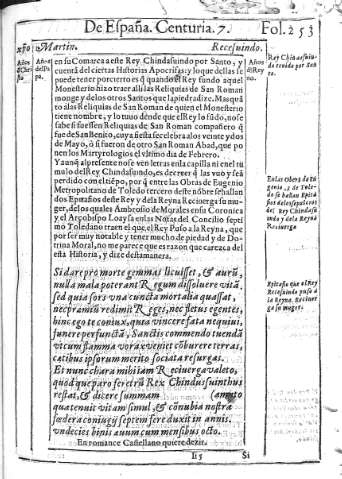 De España. Centuria. 7.
Fol. 253
xpo Martin.
Recesuindo.
en su Comarca a este Rey Chindasuindo por Santo, y
cuenta del ciertas Historias Apocrifas: y lo que dellas se
puede tener por cierto es que quando el Rey fundo aquel
Monesterio hizo traer alli las Reliquias de San Roman
monge y de los otros Santos que la piedra dize. Mas quã
to a las Reliquias de San Roman de quien el Monesterio
tiene nombre, y lo tuuo dende que el Rey lo fũdo, no se
sabe si fuessen Reliquias de San Roman compañero q̃
fue de San Benito, cuya fiesta se celebra a los veinte y dos
de Mayo, ò si fueron de otro San Roman Abad, que po
nen los Martyrologios el vltimo dia de Febrero.
Y aunq̃ al presente no se ven letras en la capilla ni en el tu
mulo del Rey Chindasuindo, es de creer q̃ las vuo y se ã
perdido con el tiẽpo, por q̃ entre las Obras de Eugenio
Metropolitano de Toledo tercero deste nõbre se hallan
dos Epitafios deste Rey y de la Reyna Reciuerga su mu-
ger, de los quales Ambrosio de Morales en su Coronica
y el Arçobispo Loaysa en las Notas del Concilio septi-
mo Toledano traen el que, el Rey Puso a la Reyna, que
por ser muy notable y tener mucho de piedad y de Do-
trina Moral, no me parece que es razon que carezca del
esta Historia, y dize destamanera.
Si dare pro morte gemmas licuisset, & aurũ,
nulla mala poterant Regum dissoluere vitã.
sed quia sors vna cuncta mortalia quassat,
nec præmiũ redimit Reges, nec fletus egentes,
hinc ego te coniux, quia vincere fata nequiui,
funere perfunctã, Sanctis commendo tuendã
vt cum flamma vorax veniet cõburere terras,
cœtibus ipsorum merito sociata resurgas.
Et nunc chara mihi iam Reciuerga valeto,
quod que paro feretrũ Rex Chindasuinthus
restat, & dicere summam (amato
qua tenuit vitam simul, & cõnubia nostra
fœdera coniugij septem fere duxit in annis.
vndecies binis æuum cum mensibus octo.
En romance Castellano quiere dezir.
Ii 5
Si
Rey Chindasuin
do tenido por San
to.
Epitafio que el Rey
Recesuindo puso à
la Reyna Reciuer
ga su muger.